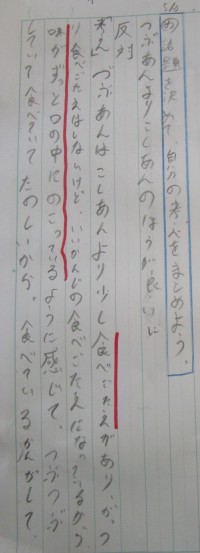 話題を決めて、自分の考えをまとめよう。
つぶあんよりこしあんのほうが良いに
反対
考え つぶあんはこしあんより少し食べごたえがあり、がっ
り食べごたえはしないけど、いいかんじの食べごたえになっているから、
味がずっと口の中にのこっているように感じて、つぶつぶが
していて食べていてたのしいから。食べているかんがして、